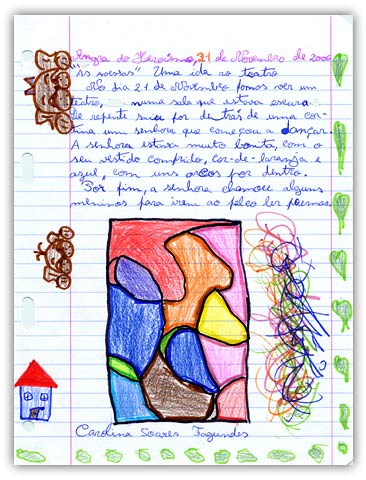 Angra do Heroísmo, 21 de Novembro de 2006
"As nossas" Uma ida ao teatro
No dia 21 de Novembro fomos ver um
teatro, numa sala que estava escura.
De repente saiu por de trás de uma cor-
tina um senhora que começou a dançar.
A senhora estava muito bonita, com o
seu vestido comprido, cor-de-laranja e
azul, com uns arcos por dentro.
Por fim, a senhora chamou alguns
meninos para irem ao palco ler poemas.
Carolina Soares Fagundes